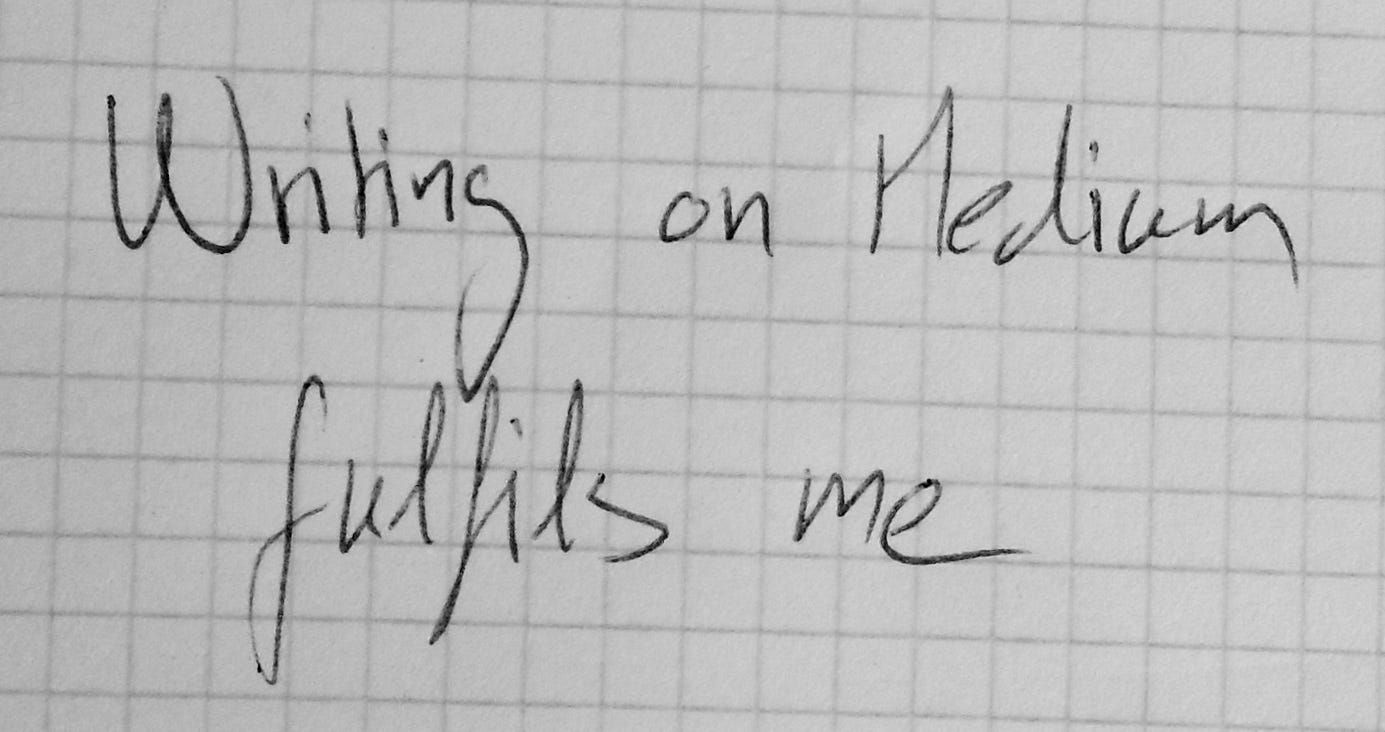 Writing on Medium
fulfils me